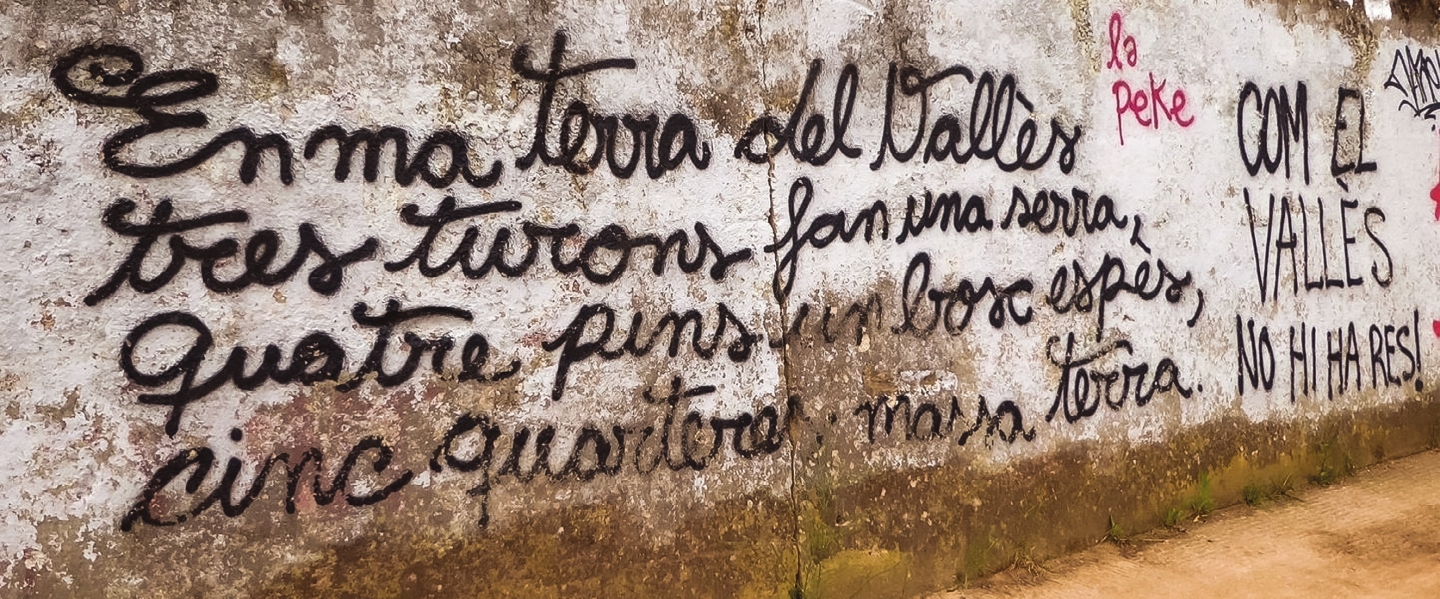 En ma terra del Vallès
tres turons fan una serra,
quatre pins un bosc espès,
cinc quarteres massa terra.
la
peke
COM EL
VALLÈS
NO HI HA RES!